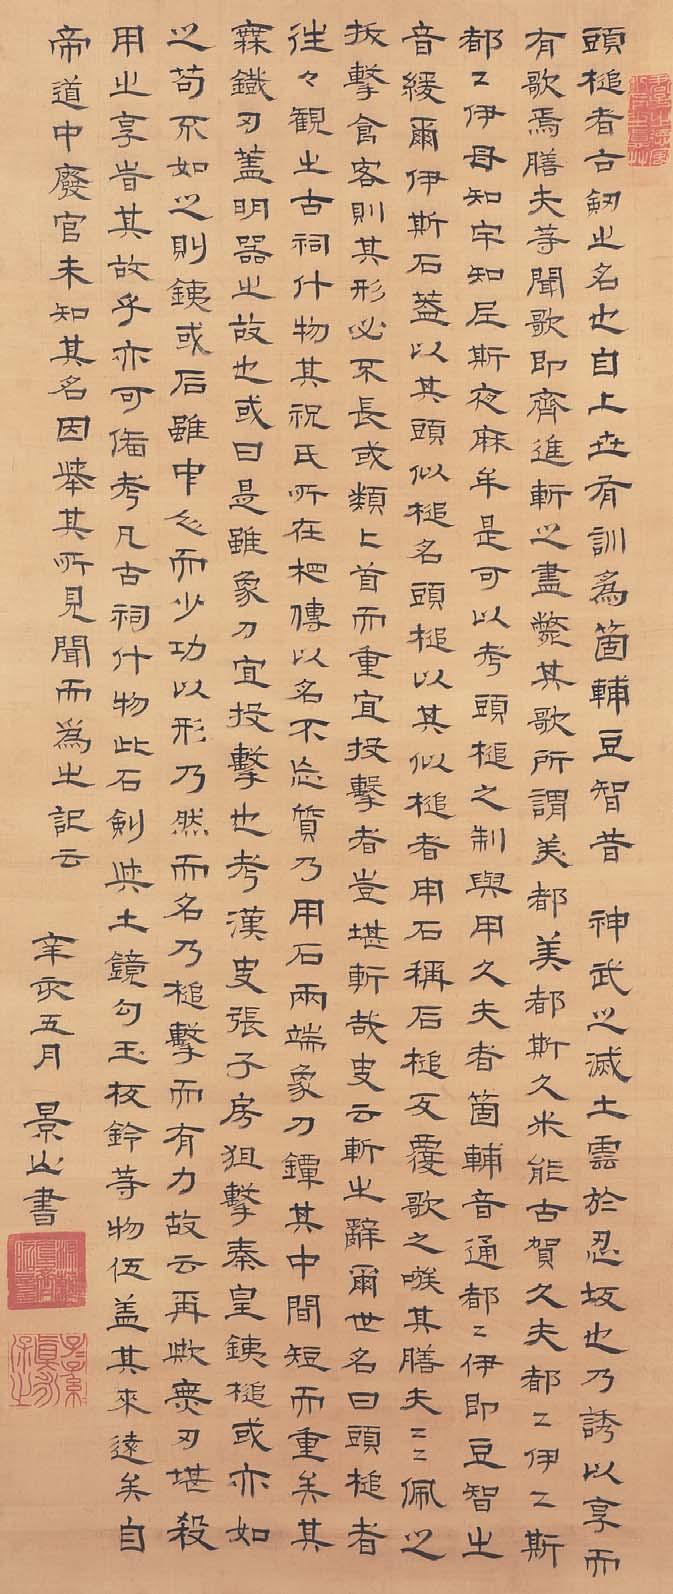 頭槌者古劔之名也自上世有訓爲箇輔豆智昔 神武之滅土雲於忍坂也乃誘以享而
有歌焉膳夫等聞歌即齊進斬之盡斃其歌所謂美都美都斯久米能古賀久夫都々伊々斯
都々伊母知宇知弖斯夜麻牟是可以考頭槌之制與用久夫者箇輔音通都々伊即豆智之
音緩爾伊斯石蓋以其頭似槌名頭槌以其似槌者用石稱石槌反覆歌之嗾其膳夫々々佩之
拔擊食客則其形必不長或類上首而重宜投擊者豈堪斬哉史云斬之辭爾世名曰頭槌者
往々観之古祠什物其祝氏所在柶傳以名不忘質乃用石兩端象刀鐔其中間短而重矣其
霖鐵刃蓋明器之故也或曰是雖象刀宜投擊也考漢史張子房狙擊秦皇銕槌或亦如
之苟不如之則銕或石雖中之而少功以形乃然而名乃槌擊而有力故云再歟無刃堪殺
用之享者其故乎亦可備考凡古祠什物此石剣與土鏡勾玉板鈴等物伍盖其來遠矣自
帝道中廢官未知其名因舉其所見聞而爲之記云
辛亥五月 景山書